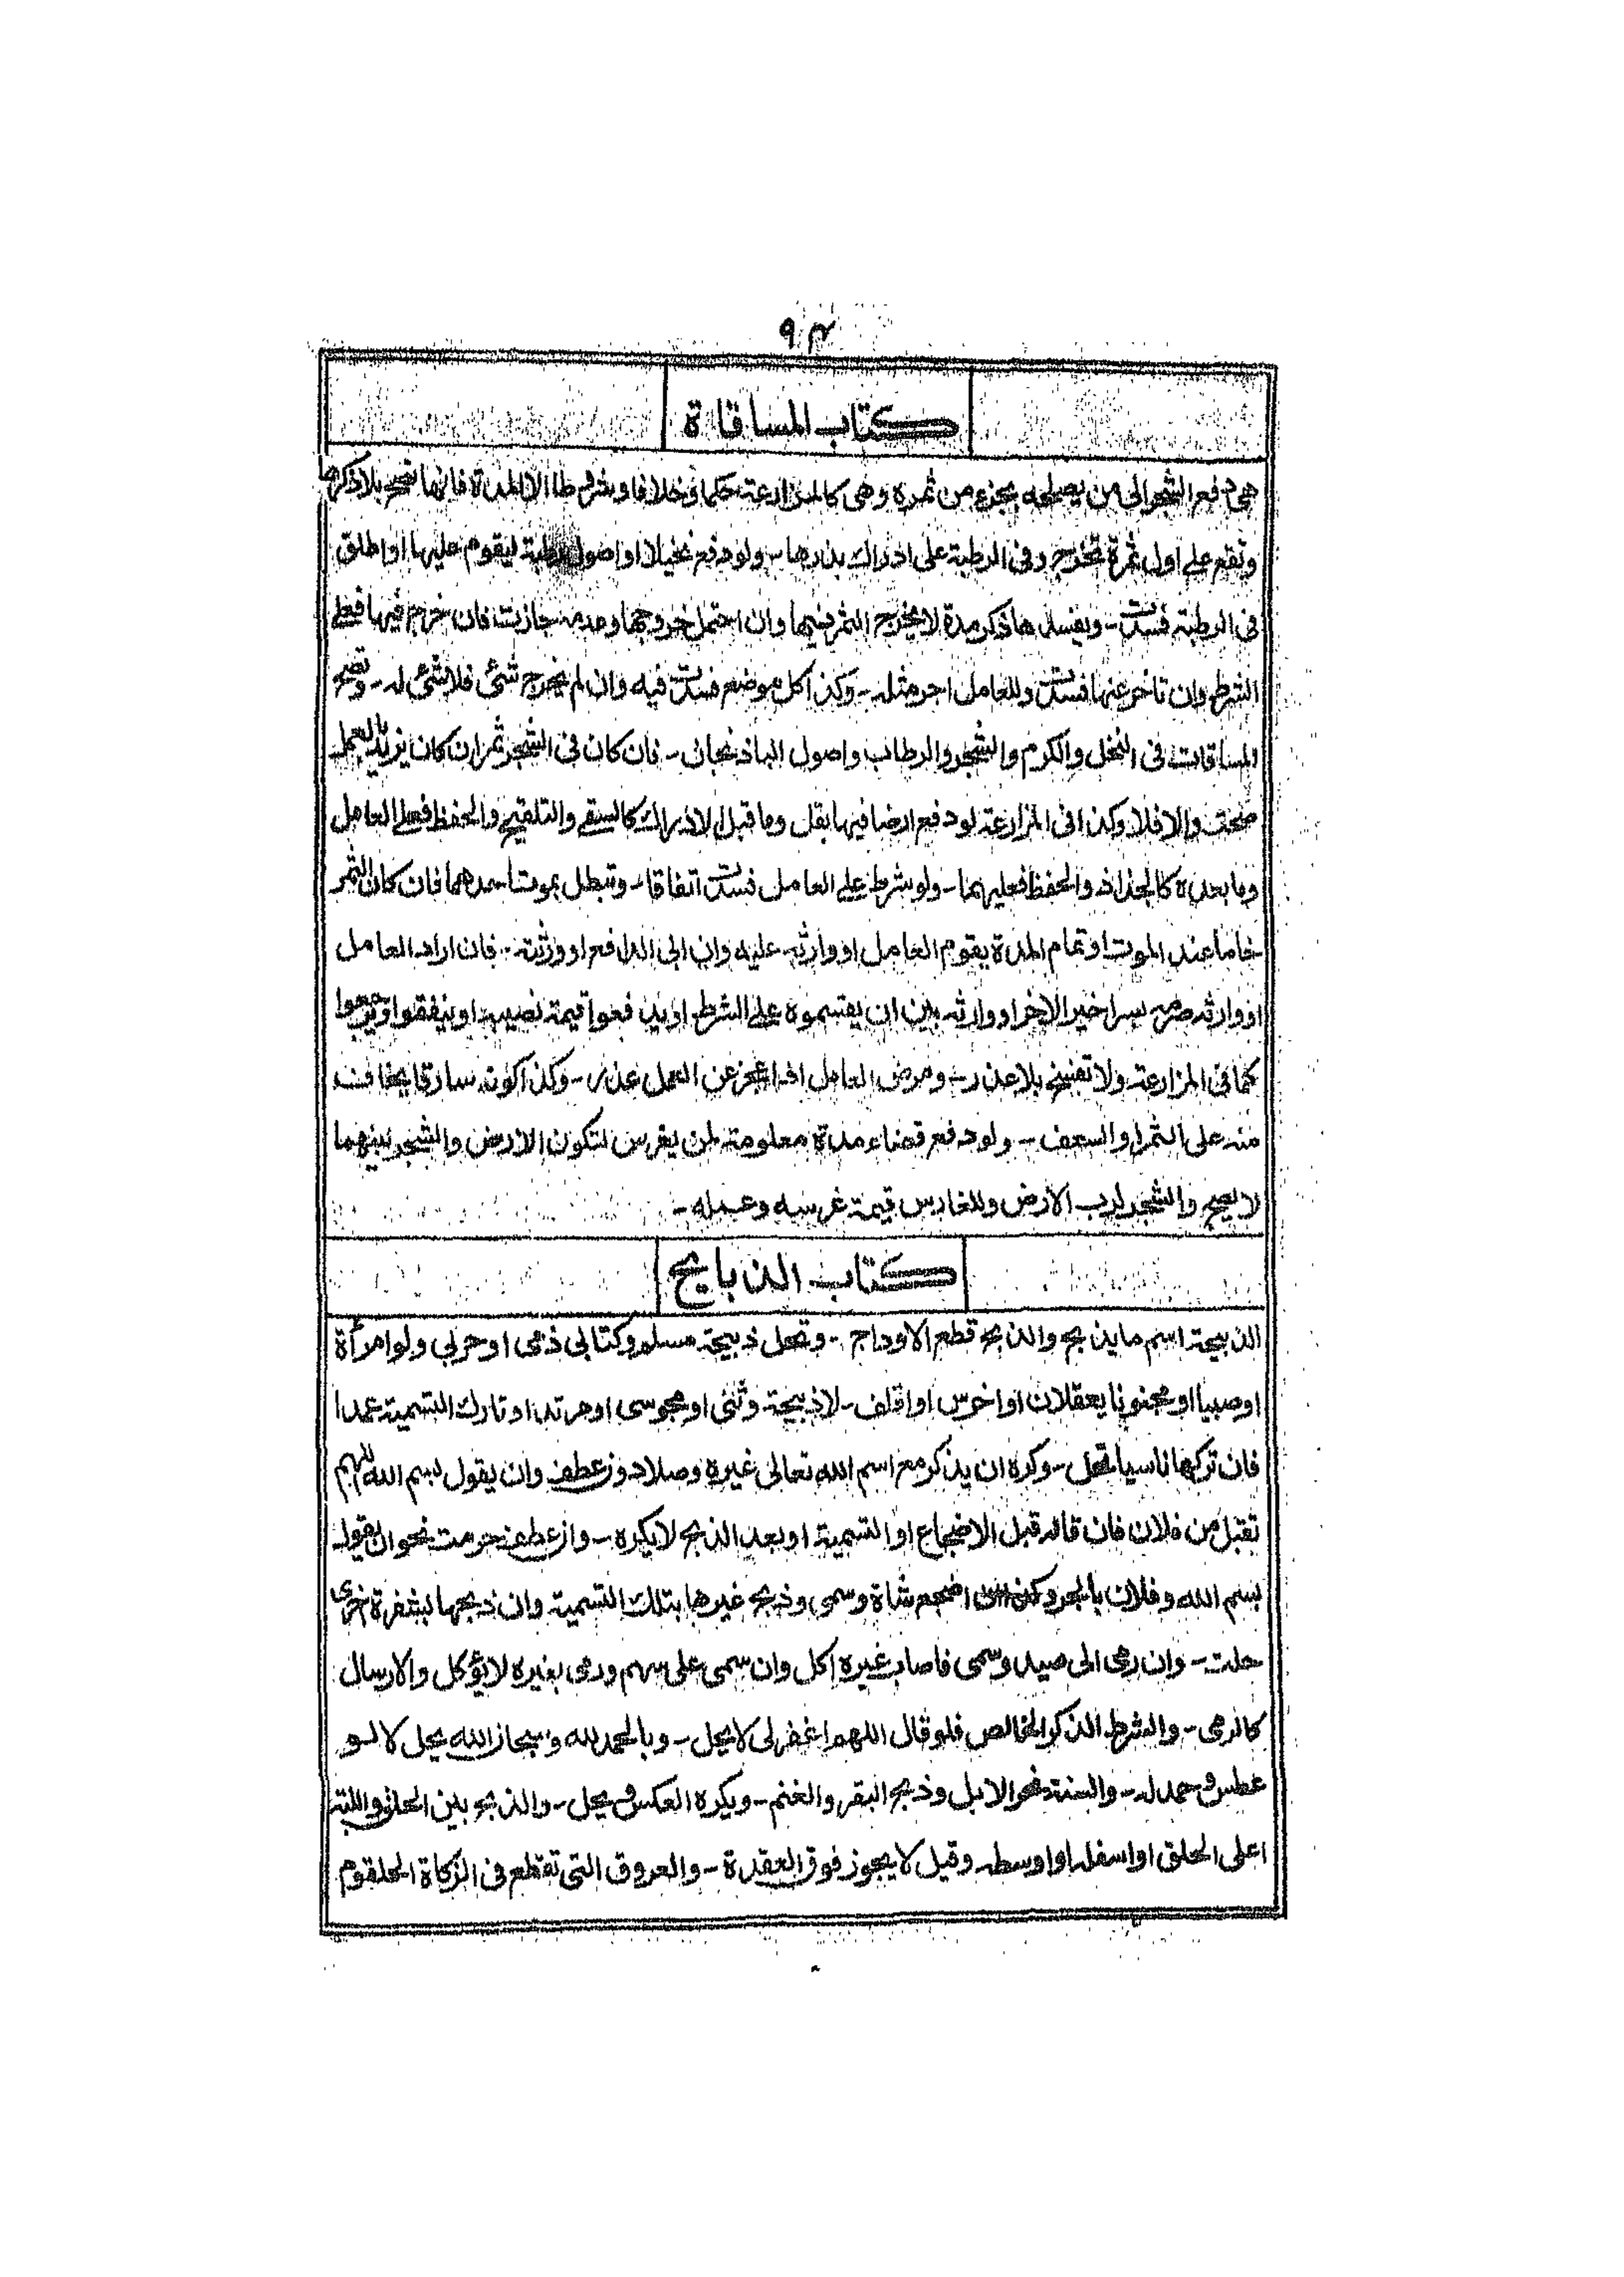 ٩٣
كتاب المساقاة
هى دفع الشجر الى من يصلحه بجزء من ثمره وهى كالمزارعة حكما وخلافا وشروطا الا المدة فانها تصح بلا ذكرها
وتقع على اول ثمرة تخرج وفى الرطبة على ادراك بذرها - ولو دفع نخيلا او اصول رطبة ليقوم عليها او اطلق
فى الرطبة فسدت - ويفسدها ذكر مدة لا يخرج الثمر فيها وان احتمل خروجها وعدمه جازت فان خرج فيها فعلى
الشرط وان تاخر عنها فسدت وللعامل اجر مثله - وكذا كل موضع فسدت فيه وان لم يخرج شئ فلا شئ له - وتصح
المساقات فى النخل والكرم والشجر والرطاب واصول الباذنجان - فان كان فى الشجر ثمر ان كان يزيد بالعمل
صحت والا فلا وكذا فى المزارعة لو دفع ارضا فيها بقل وما قبل الادراك كالسقى والتلقيح والحفظ فعلى العامل
وما بعده كالجذاذ والحفظ فعليهما - ولو شرط على العامل فسدت اتفاقا - وتبطل بموت احدهما فان كان الثمر
خاما عند الموت او تمام المدة يقوم العامل او وارثه عليه وان ابى الدافع او ورثته - فان اراد العامل
او وارثه صرمه بسرا خير الاخر او وارثه بين ان يقتسموه على الشرط او يدفعوا قيمة نصيبه او ينفقوا ويرجعوا
كما فى المزارعة ولا تفسخ بلا عذر - ومرض العامل اذا عجز عن العمل عذر - وكذا كونه سارقا يخاف
منه على الثمر او السعف - ولو دفع فضاء مدة معلومة لمن يغرس لتكون الارض والشجر بينهما
لا يصح والشجر لرب الارض وللغارس قيمة غرسه وعمله -
كتاب الذبايح
الذبيحة اسم ما يذبح والذبح قطع الاوداج - وتحل ذبيحة مسلم وكتابى ذمى او حربى ولو امرأة
او صبيا او مجنونا يعقلان او اخرس او اقلف - لا ذبيحة وثنى او مجوسى او مرتد او تارك التسمية عمدا
فان تركها ناسيا تحل - وكره ان يذكر مع اسم الله تعالى غيره وصلا دون عطف وان يقول بسم الله اللهم
تقبل من فلان فان قاله قبل الاضجاع او التسمية او بعد الذبح لا يكره - وان عطف حرمت نحو ان يقول
بسم الله وفلان بالجر وكذا ان اضجع شاة وسمى وذبح غيرها بتلك التسمية وان ذبحها بشفرة اخرى
حلت - وان رمى الى صيد وسمى فاصاب غيره اكل وان سمى على سهم ورمى بغيره لا يؤكل والارسال
كالرمى - والشرط الذكر الخالص فلو قال اللهم اغفر لى لا يحل - وبالحمد لله وسبحان الله يحل لا لو
عطس وحمد له - والسنة نحر الابل وذبح البقر والغنم - ويكره العكس ويحل - والذبح بين الحلق واللبة
اعلى الحلق او اسفله او اوسطه وقيل لا يجوز فوق العقدة - والعروق التى تقطع فى الزكاة الحلقوم